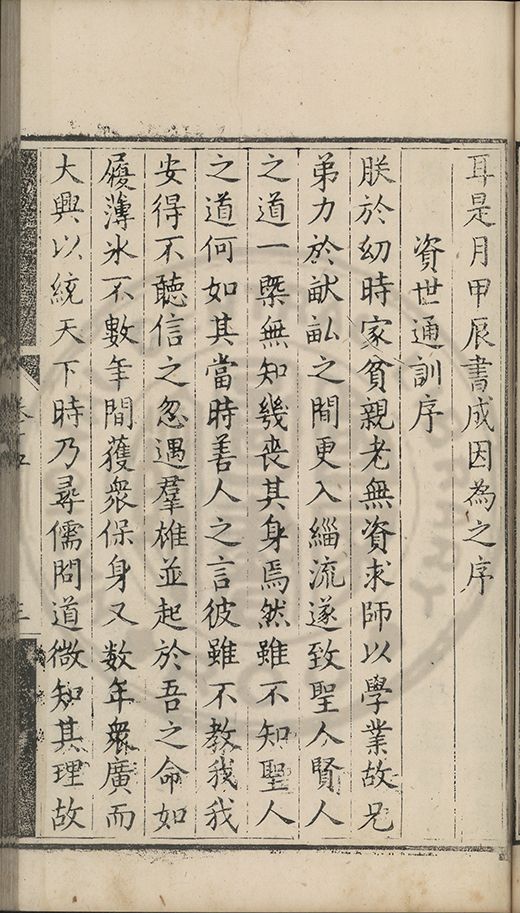 耳是月甲辰書成因為之序
資世通訓序
朕於幼時家貧親老無資求師以學業故兄
弟力於畎畆之間更入緇流遂致聖人賢人
之道一槩無知幾喪其身焉然雖不知聖人
之道何如其當時善人之言彼雖不教我我
安得不聽信之忽遇羣雄並起於吾之命如
履薄氷不數年間獲衆保身又数年衆廣而
大興以統天下時乃尋儒問道微知其理故